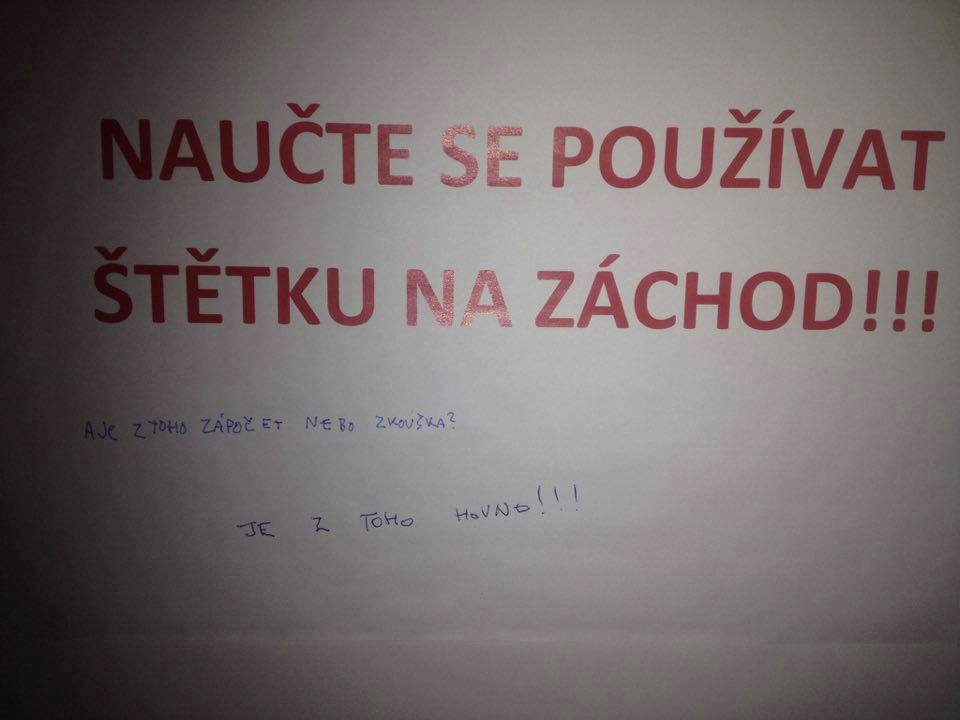 NAUČTE SE POUŽÍVAT
ŠTĚTKU NA ZÁCHOD!!!
A JE Z TOHO ZÁPOČET NEBO ZKOUŠKA?
JE Z TOHO HOVNO!!!